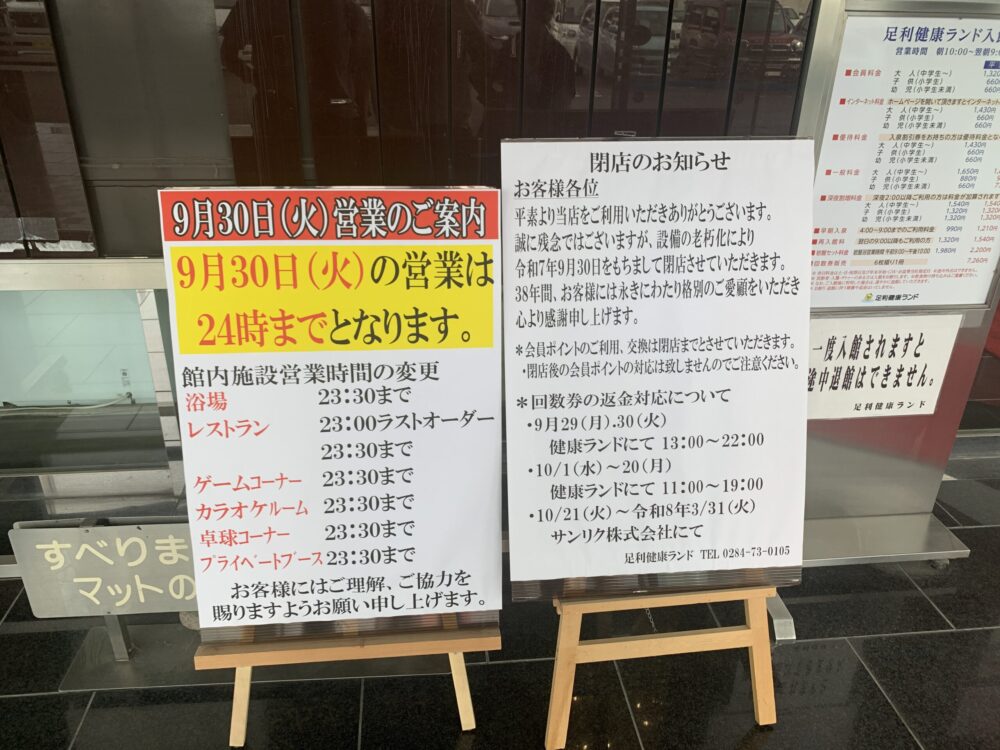 9月30日(火)営業のご案内
9月30日(火)の営業は
24時までとなります。
館内施設営業時間の変更
浴場 23:30まで
レストラン 23:00ラストオーダー
23:30まで
ゲームコーナー 23:30まで
カラオケルーム 23:30まで
卓球コーナー 23:30まで
プライベートブース 23:30まで
お客様にはご理解、ご協力を
賜りますようお願い申し上げます。
閉店のお知らせ
お客様各位
平素より当店をご利用いただきありがとうございます。
誠に残念ではございますが、設備の老朽化により
令和7年9月30日をもちまして閉店させていただきます。
38年間、お客様には永きにわたり格別のご愛顧をいただき
心より感謝申し上げます。
*会員ポイントのご利用、交換は閉店までとさせていただきます。
・閉店後の会員ポイントの対応は致しませんのでご注意ください。
*回数券の返金対応について
・9月29(月).30(火)
健康ランドにて 13:00～22:00
・10/1(水)～20(月)
健康ランドにて 11:00～19:00
・10/21(火)～令和8年3/31(火)
サンリク株式会社にて
足利健康ランド TEL 0284-73-0105
足利健康ランド入
営業時間 朝10:00～翌朝9:
■会員料金 大人(中学生～) 1,320
子供(小学生) 660
幼児(小学生未満) 660
■インターネット料金 ホームページを開いて頂きますとインターネッ
大人(中学生～) 1,430円
子供(小学生) 660円
幼児(小学生未満) 660円
■優待料金 入泉割引券をお持ちの方は優待料金とな
大人(中学生～) 1,430円
子供(小学生) 660円
幼児(小学生未満) 660円
■一般料金 大人(中学生～) 1,650円
子供(小学生) 880円
幼児(小学生未満) 660円
■深夜割増料金 深夜2:00以降ご利用の方は料金が加算されます
大人(中学生～) 1,540円
子供(小学生) 1,320円
幼児(小学生未満) 1,320円
■早朝入泉 4:00～9:00までのご利用料金 990円 1,210円
■再入館料 翌日の9:00以降もご利用の方 1,320円 1,540円
1,980円 2,200円
■回数券販売 6枚綴り1冊 7,260円
足利健康ランド
一度入館されますと
途中退館はできません。
足利健康ランド
すべりま
マットの